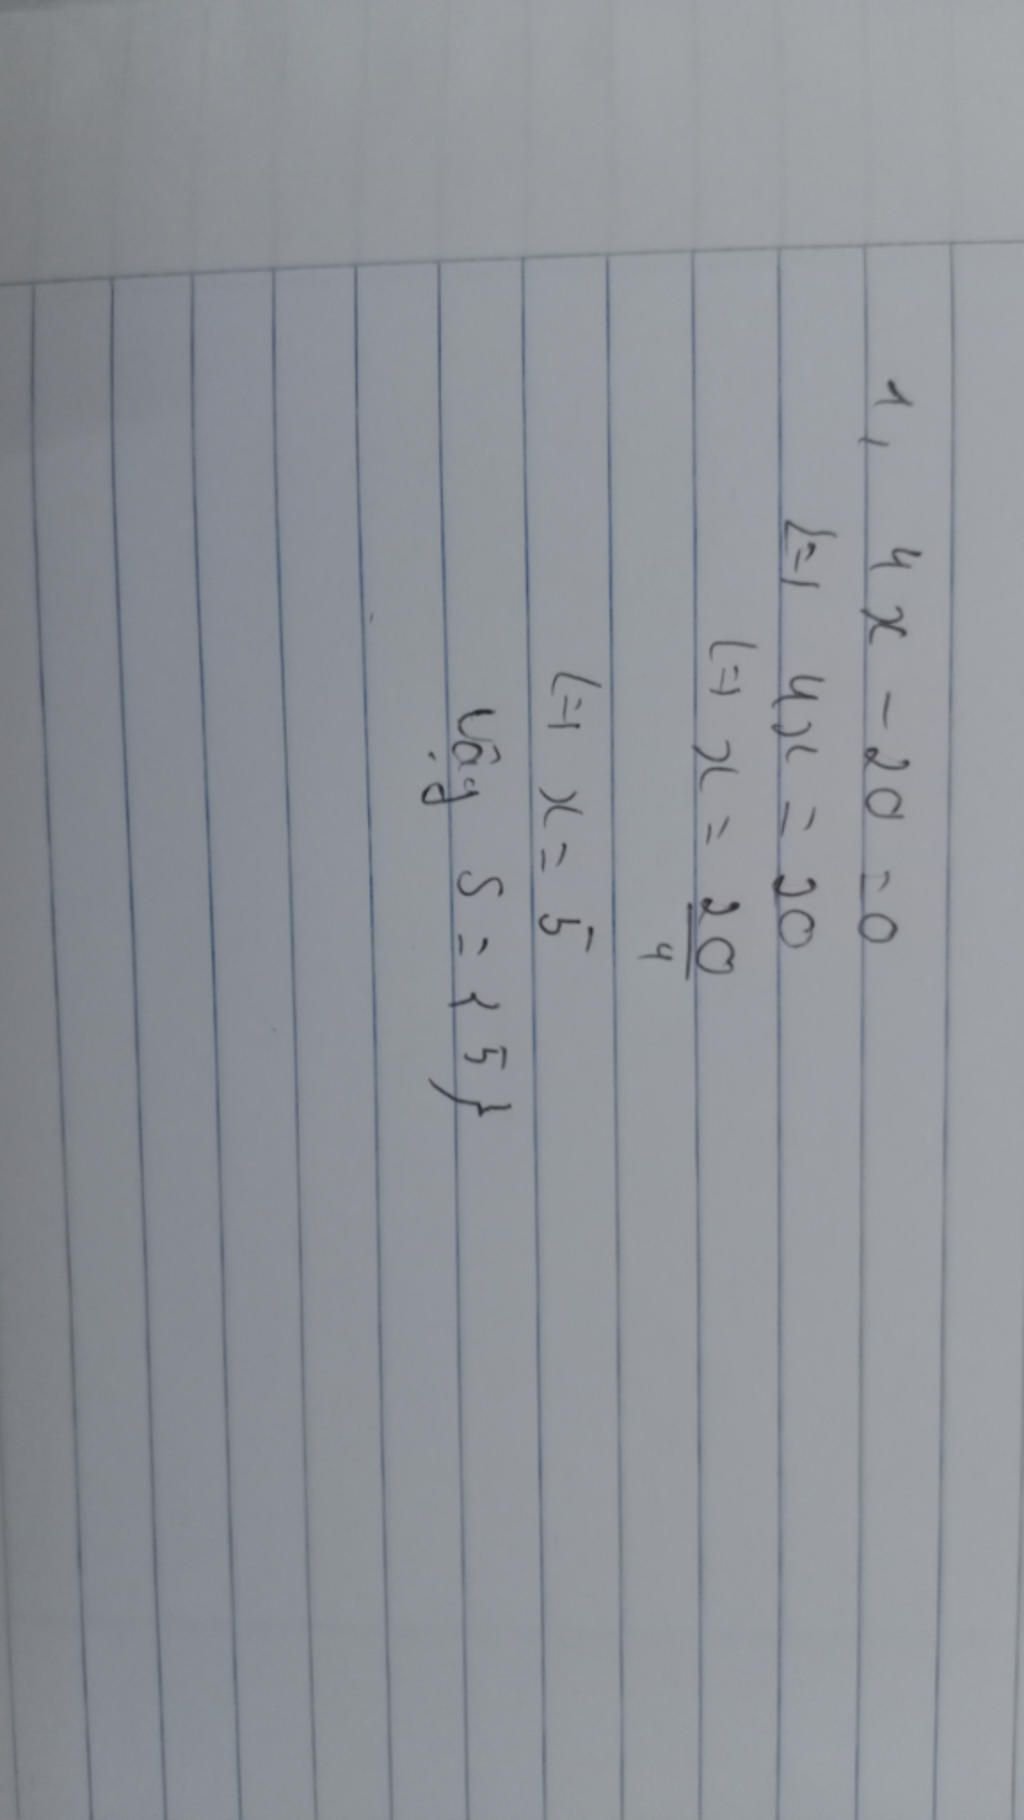 1, 4x - 20 = 0
<=> 4x = 20
<=> x = 20/4
<=> x = 5
Vậy S = {5}